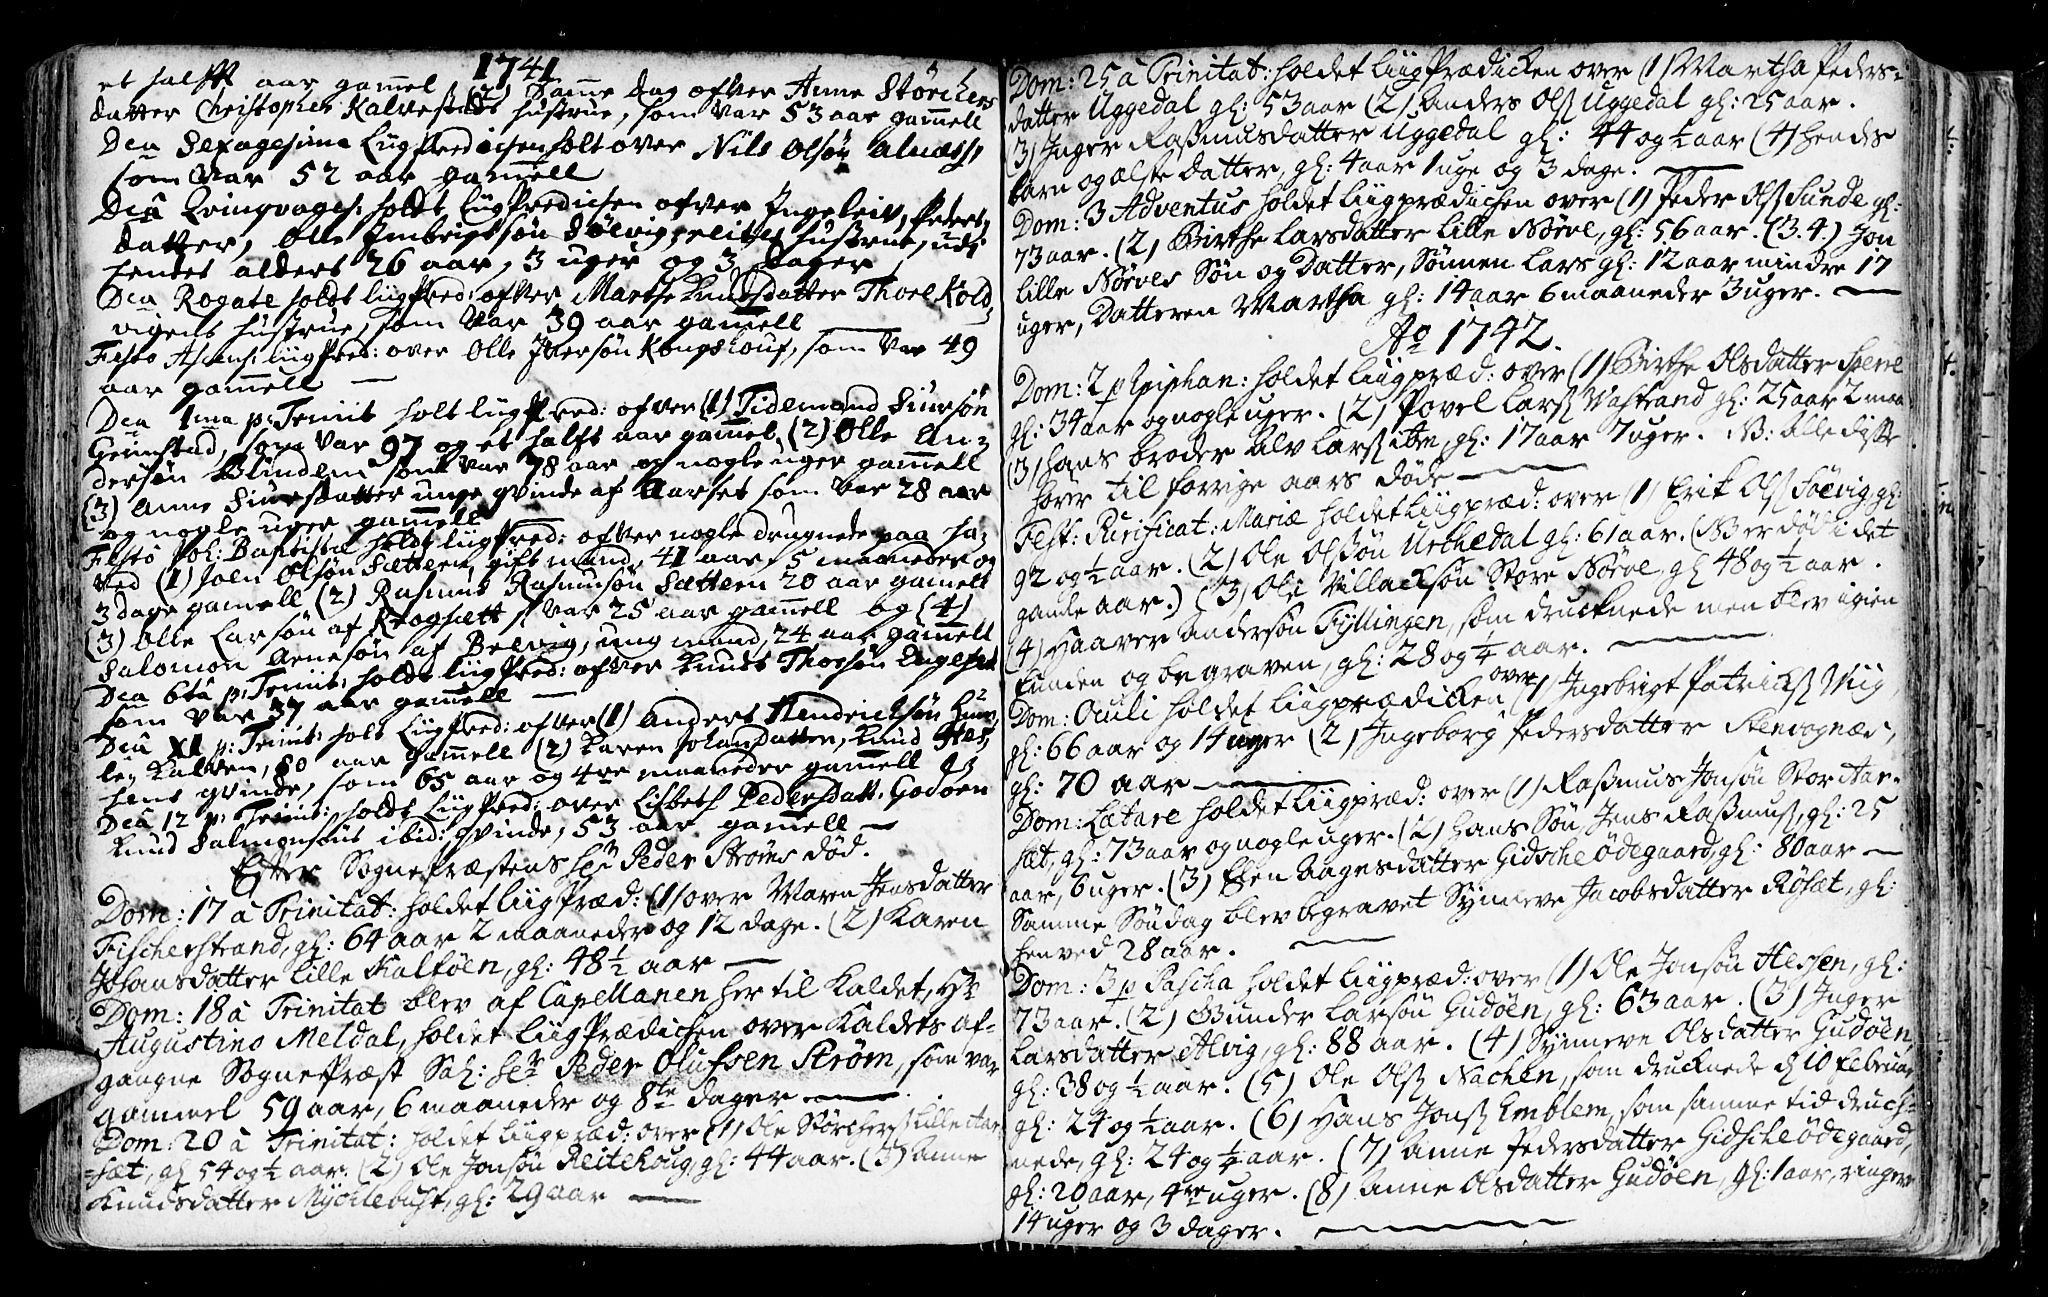 1741
et halft aar gamel (2) Samme dag ofver Anne Störchers
datter Christopher Kalvestedt hustrue, som var 53 aar gamell
Dca Sexagesima Liigpredicen holt over Nils Olsön Alnæss
som var 52 aar gamell
Dca Qvinqvages: holdt liigpredicen ofver Ingeleiv Peders
datter, Olle Imbrigtsön Sölvig, hustrue, udi
hendes alders 26 aar, 3 uger og 3 dager
Dca Rogate holdt liigpred: ofver Marthe Knudsdatter Thore Kold
vigens hustrue, som var 39 aar gamell
Festo Ascens: liigpred: over Olle Iversön Kongshoug, som var 49
aar gamell
Dca 1ma p: Trinit holt liigpred: ofver (1) Tidemand Siursön
Grimstad, som var 97 og et halft aar gamel (2) Olle An-
dersön Blindem som var 78 aar og nogle uger gamell
(3) Anne Siursdatter unge qvinde af Aarset som var 28 aar
og nogle uger gamell
Festo Joh: Baptistæ holdt liigpred: ofver nogle drugnede paa ha-
ved (1) Joen Olsön Sættern, gift mand, 41 aar, 5 maaneder og
3 dage gamell (2) Rasmus Rasmusön Sættern 20 aar gamell
(3) Olle Larsön af Krogsætt, var 25 aar gamell og (4)
Salomon Arnesön af Brevig, ung mand, 24 aar gamell
Dca 6ta p: Trinit: holdt liigpred: ofver Knud Thorsön Engeset
som var 37 aar gamell
Dca XI p: Trinit: holt liigpred: ofver (1) Anders Hendrichsön
len Kalven, 80 aar gamell (2) Karen Johansdatter, Knud
hens qvinde, som 65 aar og 4re maaneder gamell
Dca 12 p: Trinit: holdt liigpred: over Lisbeth Pedersdatt. Godöen
Knud Salmonsöns ibid: qvinde, 53 aar gamell
Efter Sognepræstens hr Peder Ströms död.
Dom: 17 â Trinitat: holdet Liigpræd: (1) over Maren Jensdatter
Fischerstrand, gl: 64 aar 2 maaneder og 12 dage. (2) Karen
Johansdatter lille Kalföen, gl: 48½ aar
Dom: 18 â Trinitat blev af Capellanen her til Kaldet, Hr
Augustino Meldal, holdet Liigprædichen over Kaldets af-
gangne Sognepræst Sal: hr Peder Olufsen Ström, som var
gammel 59 aar, 6 maaneder og 8te dager
Dom: 20 â Trinitat: holdet liigpræd: over (1) Ole Störchers Lille Aar
-sæt, gl 54 og ½ aar. (2) Ole Jonsön Reitehoug, gl: 44 aar. (3) Anne
Knudsdatter Mychlebust, gl: 29 aar
Dom: 25 â Trinitat: holdet Liigprædicken over (1) Martha Peders-
datter Uggedal gl: 53 aar (2) Anders Olss Uggedal gl: 25 aar.
(3) Inger Rasmusdatter Uggedal gl: 44 og ½ aar (4) hendes
barn og elste datter, gl: 4 aar 1 uge og 3 dage.
Dom: 3 Adventus holdet Liigprædichen over (1) Peder Olss Sunde gl:
73 aar. (2) Birthe Larsdatter Lille Nörve, gl: 56 aar. (3.4.) Jon
lille Nörves Sön og Datter, Sönnen Lars gl: 12 aar mindre 17
uger, Datteren Martha gl: 14 aar 6 maaneder 3 uger.
Ao 1742.
Dom: 2 p Epiphan: holdet liigpræd: over (1) Birthe Olsdatter Sperre
gl: 34 aar og nogle uger. (2) Povel Larss Vastrand gl: 25 aar 2 maa
(3) Hans broder Alv Larss ibn, gl: 17 aar 7 uger. NB: Alle disse
hörer til forrige aars döde
Fest: Purificat: Mariæ holdet Liigpræd: over (1) Erik Olss Solevig, gl:
92 og ½ aar. (2) Ole Olssön Urkedal gl: 61 aar. (NB er död i det
gamle aar.) (3) Ole Villacksön Store Nörve, gl 48 og ½ aar.
(4) Haaver Andersön Fyllingen, som drucknede men blev igien
funden og begraven, gl: 28 og ¼ aar.
Dom: Oculi holdet Liigprædicken over (1) Ingebrigt Patricks Viig,
gl: 66 aar og 14 uger (2) Ingeborg Pedersdatter Stenvognæs,
gl: 70 aar
Dom: Lætare holdet Liigpræd: over (1) Rasmus Jonsön Stor Aar-
sæt, gl: 73 aar og nogle uger. (2) Hans Sön, Jens Rasmuss, gl: 25
aar, 6 uger. (3) Elen Aagesdatter Gidsche Ödegaard, gl: 80 aar
Samme Söndag blev begravet Synneve Jacobsdatter Rösæt, gl:
henved 28 aar.
Dom: 3 p Pascha holdet Liigpræd: over (1) Ole Jonsön Hessen, gl:
73 aar. (2) Gunder Larsön Gudöen, gl: 63 aar. (3) Inger
Larsdatter Alvig, gl: 88 aar. (4) Synneve Olsdatter Gudöen,
gl: 38 og ½ aar. (5) Ole Olss Nachen, som drucknede d 10 Februar,
gl: 24 og ½ aar. (6) Hans Jonss Emblem, som samme tid druck-
nede, gl: 24 og ¼ aar. (7) Anne Pedersdatter Gidscheödegaard,
gl: 20 aar, 4re uger. (8) Anne Olsdatter Gudöen, gl: 1 aar, ringere
14 uger og 3 dager.